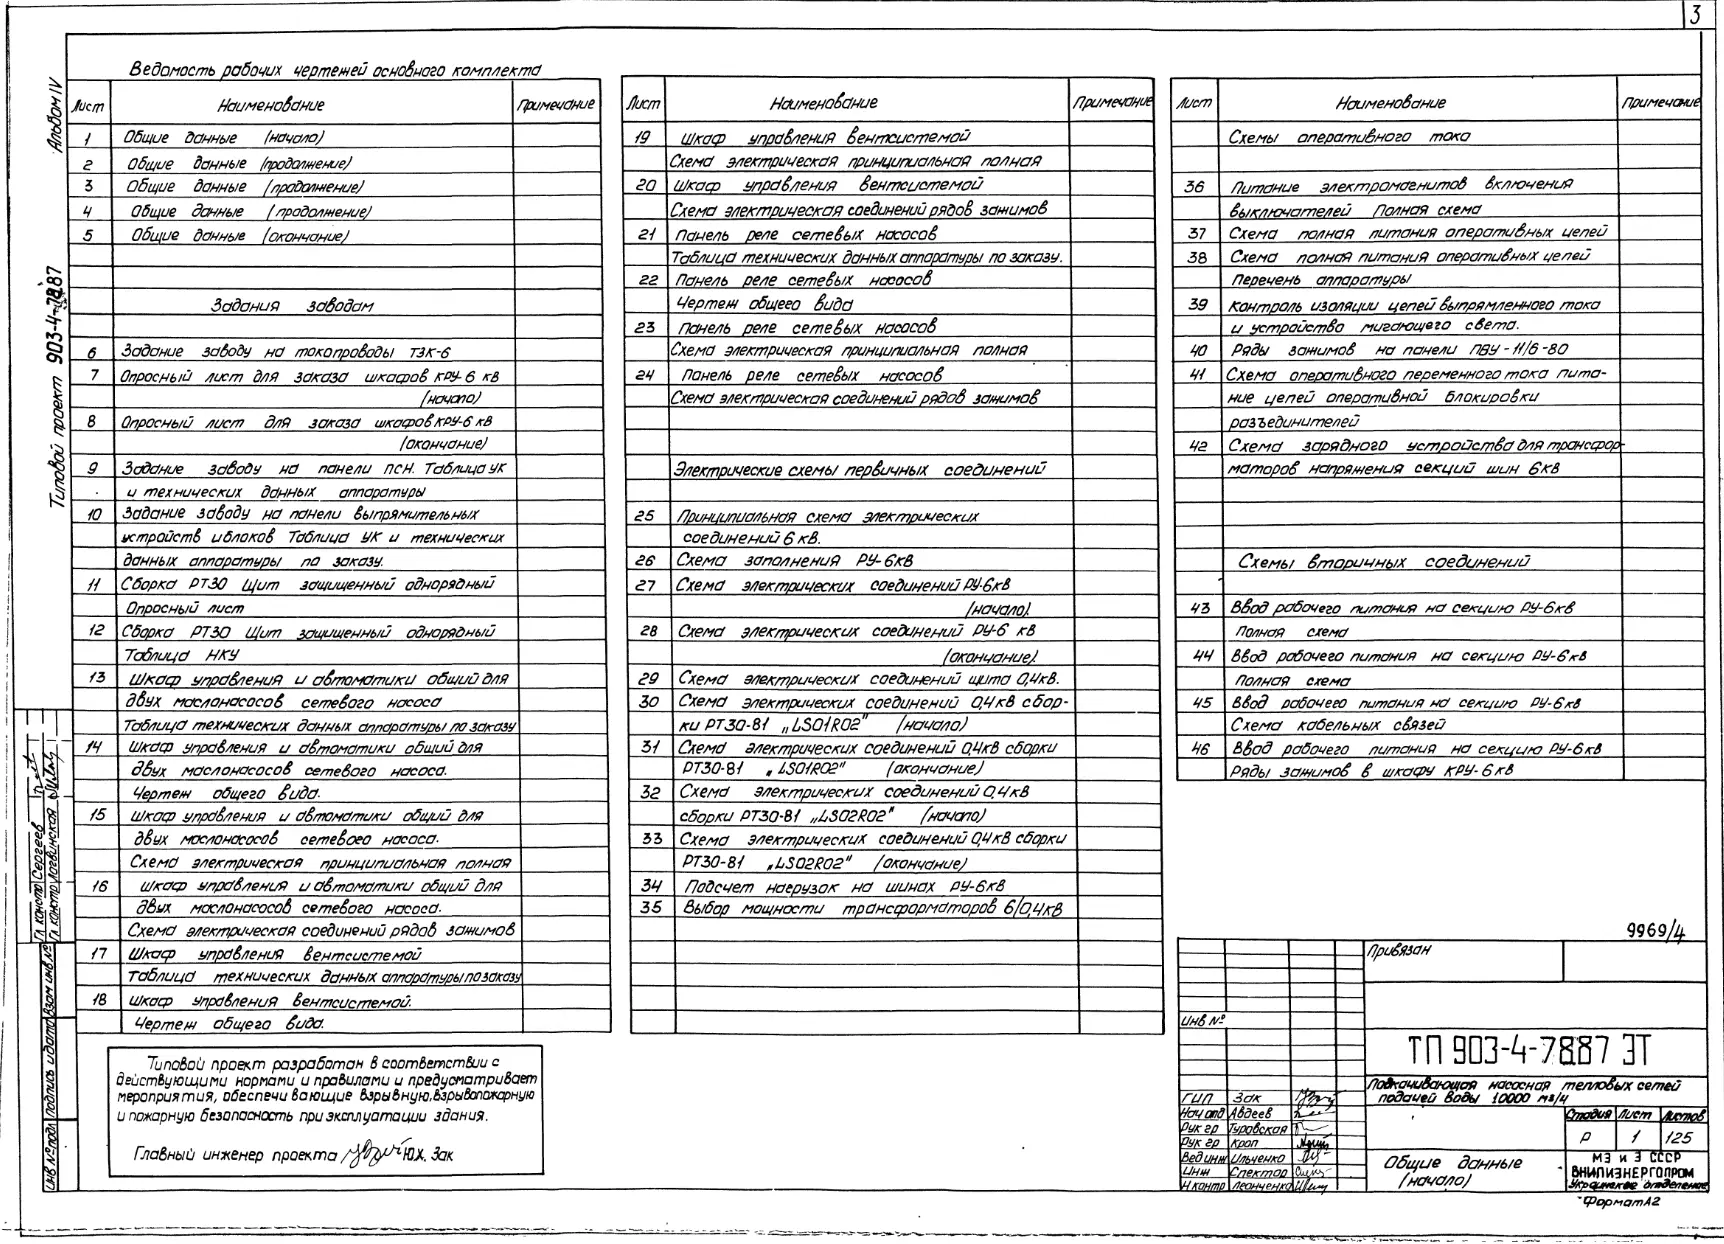 3
Альбом IV
Типовой проект 903-4-78.87
Ведомость рабочих чертежей основного комплекта
Лист Наименование Примечание
1 Общие данные (начало)
2 Общие данные (продолжение)
3 Общие данные (продолжение)
4 Общие данные (продолжение)
5 Общие данные (окончание)
Задания заводам
6 Задание заводу на токопроводы ТЗК-6
7 Опросный лист для заказа шкафов КРУ-6 кВ
(начало)
8 Опросный лист для заказа шкафов КРУ-6 кВ
(окончание)
9 Задание заводу на панели ПСН. Таблица УК
и технических данных аппаратуры
10 Задание заводу на панели выпрямительных
устройств и блоков Таблица УК и технических
данных аппаратуры по заказу.
11 Сборка РТ30 Щит защищенный однорядный
Опросный лист
12 Сборка РТ30 Щит защищенный однорядный
Таблица НКУ
13 Шкаф управления и автоматики общий для
двух маслонасосов сетевого насоса
Таблица технических данных аппаратуры по заказу
14 Шкаф управления и автоматики общий для
двух маслонасосов сетевого насоса.
Чертеж общего вида.
15 Шкаф управления и автоматики общий для
двух маслонасосов сетевого насоса.
Схема электрическая принципиальная полная
16 Шкаф управления и автоматики общий для
двух маслонасосов сетевого насоса.
Схема электрическая соединений рядов зажимов
17 Шкаф управления вентсистемой
Таблица технических данных аппаратуры по заказу
18 Шкаф управления вентсистемой.
Чертеж общего вида.
Лист Наименование Примечание
19 Шкаф управления вентсистемой
Схема электрическая принципиальная полная
20 Шкаф управления вентсистемой
Схема электрическая соединений рядов зажимов
21 Панель реле сетевых насосов
Таблица технических данных аппаратуры по заказу.
22 Панель реле сетевых насосов
Чертеж общего вида
23 Панель реле сетевых насосов
Схема электрическая принципиальная полная
24 Панель реле сетевых насосов
Схема электрическая соединений рядов зажимов
Электрические схемы первичных соединений
25 Принципиальная схема электрических
соединений 6 кВ.
26 Схема заполнения РУ-6кВ
27 Схема электрических соединений РУ-6кВ
(начало).
28 Схема электрических соединений РУ-6 кВ
(окончание).
29 Схема электрических соединений щита 0,4кВ.
30 Схема электрических соединений 0,4кВ сбор-
ки РТ30-81 „LS01R02" (начало)
31 Схема электрических соединений 0,4кВ сборки
РТ30-81 „LS01R02" (окончание)
32 Схема электрических соединений 0,4кВ
сборки РТ30-81 „LS02R02" (начало)
33 Схема электрических соединений 0,4кВ сборки
РТ30-81 „LS02R02" (окончание)
34 Подсчет нагрузок на шинах РУ-6кВ
35 Выбор мощности трансформаторов 6/0,4кВ
Лист Наименование Примечание
Схемы оперативного тока
36 Питание электромагнитов включения
выключателей Полная схема
37 Схема полная питания оперативных цепей
38 Схема полная питания оперативных цепей
Перечень аппаратуры
39 Контроль изоляции цепей выпрямленного тока
и устройство мигающего света.
40 Ряды зажимов на панели ПВУ-11/6-80
41 Схема оперативного переменного тока пита-
ние цепей оперативной блокировки
разъединителей
42 Схема зарядного устройства для трансфор-
маторов напряжения секций шин 6кВ
Схемы вторичных соединений
43 Ввод рабочего питания на секцию РУ-6кВ
Полная схема
44 Ввод рабочего питания на секцию РУ-6кВ
Полная схема
45 Ввод рабочего питания на секцию РУ-6кВ
Схема кабельных связей
46 Ввод рабочего питания на секцию РУ-6кВ
Ряды зажимов в шкафу КРУ-6кВ
Типовой проект разработан в соответствии с
действующими нормами и правилами и предусматривает
мероприятия, обеспечивающие взрывную, взрывопожарную
и пожарную безопасность при эксплуатации здания.
Главный инженер проекта Ю.Х. Зак
Гл. констр Сергеев
Гл. констр Логвинская
Инв № подл Подпись и дата Взам инв №
9969/4
Привязан
Инв №
ТП 903-4-78.87 ЭТ
Подкачивающая насосная тепловых сетей
подачей воды 10000 м3/ч
ГИП Зак
Нач отд Авдеев
Рук гр Туровская
Рук гр Кроп
Вед инж Ильченко
Инж Спектор
Н контр Леонченко
Стадия Лист Листов
Р 1 125
Общие данные
(начало)
МЭ и Э СССР
ВНИПИЭНЕРГОПРОМ
Украинское отделение
Формат А2